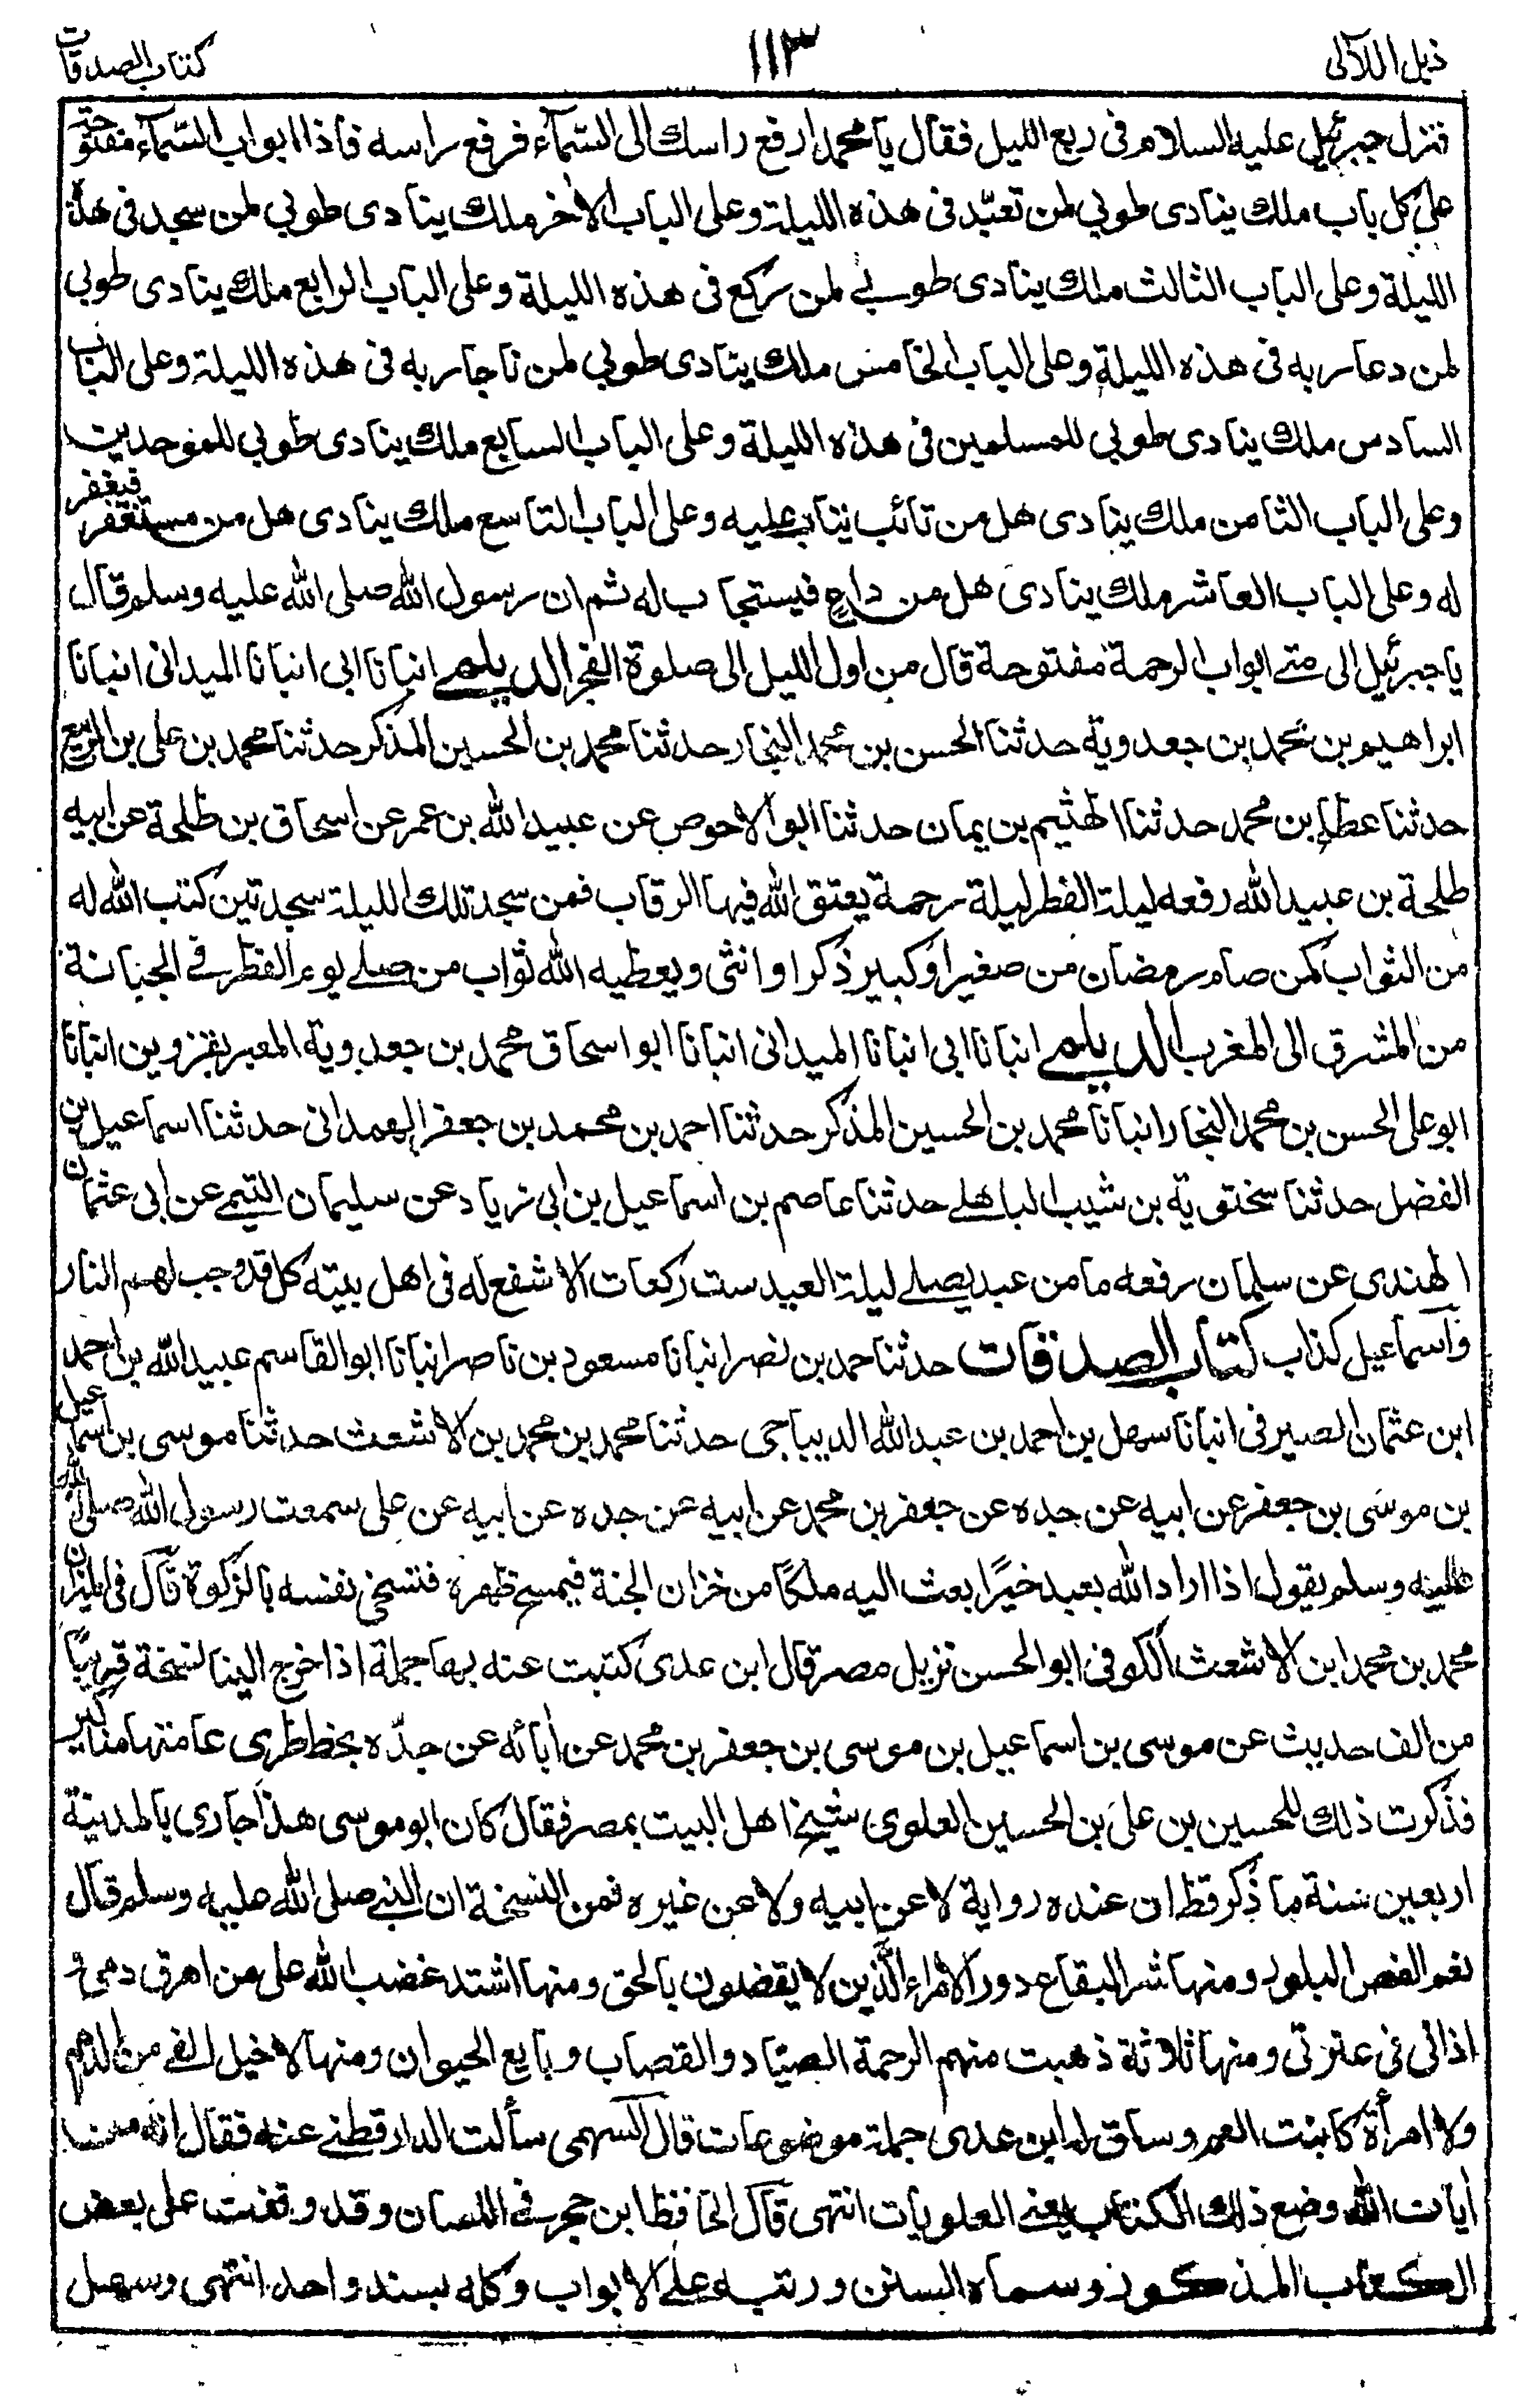 ذيل اللآلى
١١٣
كتاب الصدقات
فنزل جبرئيل عليه السلام فى ربع الليل فقال يا محمد ارفع راسك الى السّمآء فرفع راسه فاذا ابواب السّمآء مفتوحة
على كل باب ملك ينادى طوبي لمن تعبّد فى هذه الليلة وعلى الباب الأخر ملك ينادى طوبي لمن سجد فى هذه
الليلة وعلى الباب الثالث ملك ينادى طوبے لمن ركع فى هذه الليلة وعلى الباب الرابع ملك ينادى طوبي
لمن دعا ربه فى هذه الليلة وعلى الباب الخامس ملك ينادى طوبي لمن ناجا ربه فى هذه الليلة وعلى الباب
السادس ملك ينادى طوبي للمسلمين فى هذه الليلة وعلى الباب السابع ملك ينادى طوبي للموحدين
وعلى الباب الثامن ملك ينادى هل من تائب يتاب عليه وعلى الباب التاسع ملك ينادى هل من مستغفر فيغفر
له وعلى الباب العاشر ملك ينادى هل من داعٍ فيستجاب له ثم ان رسول الله صلى الله عليه وسلم قال
يا جبرئيل الى متے ابواب الرحمة مفتوحة قال من اول الليل الى صلوة الفجر الديلمے انبانا ابى انبانا الميدانى انبانا
ابراهيم بن محمد بن جعدوية حدثنا الحسن بن محمد النجار حدثنا محمد بن الحسين المذكر حدثنا محمد بن على بن الربيع
حدثنا عطاء بن محمد حدثنا الهثيم بن يمان حدثنا ابو الاحوص عن عبيد الله بن عمر عن اسحاق بن طلحة عن ابيه
طلحة بن عبيد الله رفعه ليلة الفطر ليلة رحمة يعتق الله فيها الرقاب فمن سجد تلك الليلة سجدتين كتب الله له
من الثواب كمن صام رمضان من صغير او كبير ذكرا و انثى ويعطيه الله ثواب من صلے يوم الفطر فے الجبانة
من المشرق الى المغرب الديلمے انبانا ابى انبانا الميدانى انبانا ابو اسحاق محمد بن جعدوية المعبر بقزوين انبانا
ابو على الحسن بن محمد النجار انبانا محمد بن الحسين المذكر حدثنا احمد بن محمد بن جعفر الهمدانى حدثنا اسماعيل بن
الفضل حدثنا سختوية بن شبيب الباهلے حدثنا عاصم بن اسماعيل بن ابى زياد عن سليمان التيمے عن ابى عثمان
الهندى عن سلمان رفعه ما من عبد يصلے ليلة العيد ست ركعات الا شفع له فى اهل بيته كل قد وجب لهم النار
وآسماعيل كذاب كتاب الصدقات حدثنا حمد بن نصر انبانا مسعود بن ناصر انبانا ابو القاسم عبيد الله بن احمد
ابن عثمان الصيرفى انبانا سهل بن احمد بن عبد الله الديباجى حدثنا محمد بن محمد بن الاشعث حدثنا موسى بن اسماعيل
بن موسى بن جعفر عن ابيه عن جده عن جعفر بن محمد عن ابيه عن جده عن ابيه عن على سمعت رسول الله صلى الله
عليه وسلم يقول اذا اراد الله بعبد خيرًا بعث اليه ملكًا من خزان الجنة فيمسح ظهره فتسخى نفسه بالزكوة قآل فى الميزان
محمد بن محمد ابن الاشعث الكوفى ابو الحسن نزيل مصر قال ابن عدى كتبت عنه بها جملة اذا خرج الينا نسخة قريبًا
من الف حديث عن موسى بن اسماعيل بن موسى بن جعفر بن محمد عن أبائه عن جدّه بخط طرى عامتها مناكير
فذكرت ذلك للحسين بن على بن الحسين العلوى شيخ اهل البيت بمصر فقال كان ابو موسى هذا جارى بالمدينة
اربعين سنة ما ذكر قط ان عنده رواية لا عن ابيه ولا عن غيره فمن النسخة ان النبے صلى الله عليه وسلم قال
نعم الفص البلور ومنها شر البقاع دور الامراء الّذين لا يقضلون بالحق ومنها اشتد غضب الله على من اهرق دمى و
اذانى فى عترتى ومنها ثلاثة ذهبت منهم الرحمة الصيّاد والقصاب وبايع الحيوان ومنها لا خيل القے من الدهم
ولا امرأة كابنت العم وساق له ابن عدى جملة موضوعات قال السهمى سألت الدارقطنے عنه فقال انه من
أيات الله وضع ذلك الكتاب يعنے العلويات انتهى قآل الحافظ ابن حجر فے اللسان وقد وقفت على بعض
الكتاب المذكور وسماه السنن ورتبه علے الابواب وكله بسند واحد انتهى وسهل